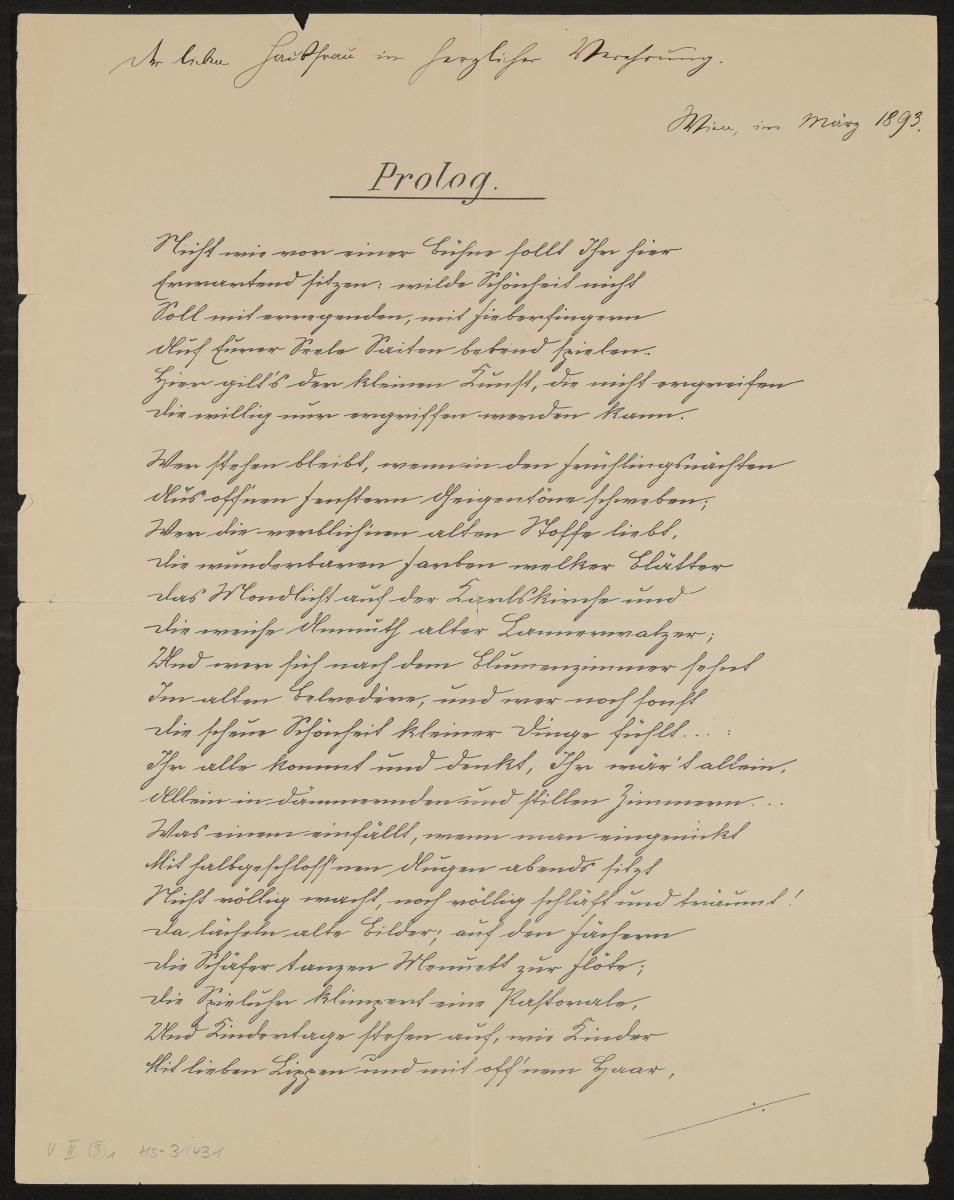 Der lieben Hausfrau in herzlicher Verehrung.
Wien, im März 1893.
Prolog.
Nicht wie vor einer Bühne sollt Ihr hier
Erwartend sitzen: wilde Schönheit nicht
Soll mit erregenden, mit Fieberfingern
Auf Eurer Seele Saiten bebend spielen.
Hier gilt's der kleinen Kunst, die nicht ergreifen
Die willig nur ergriffen werden kann.
Wer stehen bleibt, wenn in den Frühlingsnächten
Aus off'nen Fenstern Geigentöne schweben;
Wer die verblich'nen alten Stoffe liebt,
Die wunderbaren Farben welker Blätter
Das Mondlicht auf der Karlskirche und
Die weiche Anmuth alter Lannerwalzer;
Und wer sich nach dem Blumenzimmer sehnt
Im alten Belvedère, und wer noch sonst
Die scheue Schönheit kleiner Dinge fühlt...:
Ihr alle kommt und denkt, Ihr wär't allein,
Allein in dämmernden und stillen Zimmern...
Was einem einfällt, wenn man eingenickt
Mit halbgeschloss'nen Augen abends sitzt
Nicht völlig wacht, noch völlig schläft und träumt!
Da lächeln alte Bilder; auf den Fächern
Die Schäfer tanzen Menuett zur Flöte;
Die Spieluhr klimpert eine Pastorale,
Und Kindertage stehen auf, wie Kinder
Mit lieben Lippen und mit off'nem Haar,
./.
V II 3 1 HS-31431